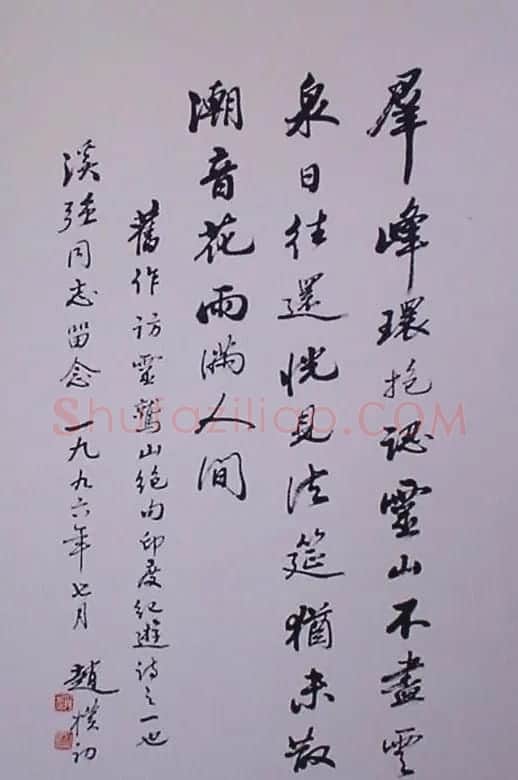 羣峰環抱認靈山不盡雲
泉日往還恍見法筵猶未散
潮音花雨滿人间
舊作訪靈鷲山绝句印度纪遊诗之一也
溪强同志留念 一九九六年七月 趙樸初
Shufaziliao.COM